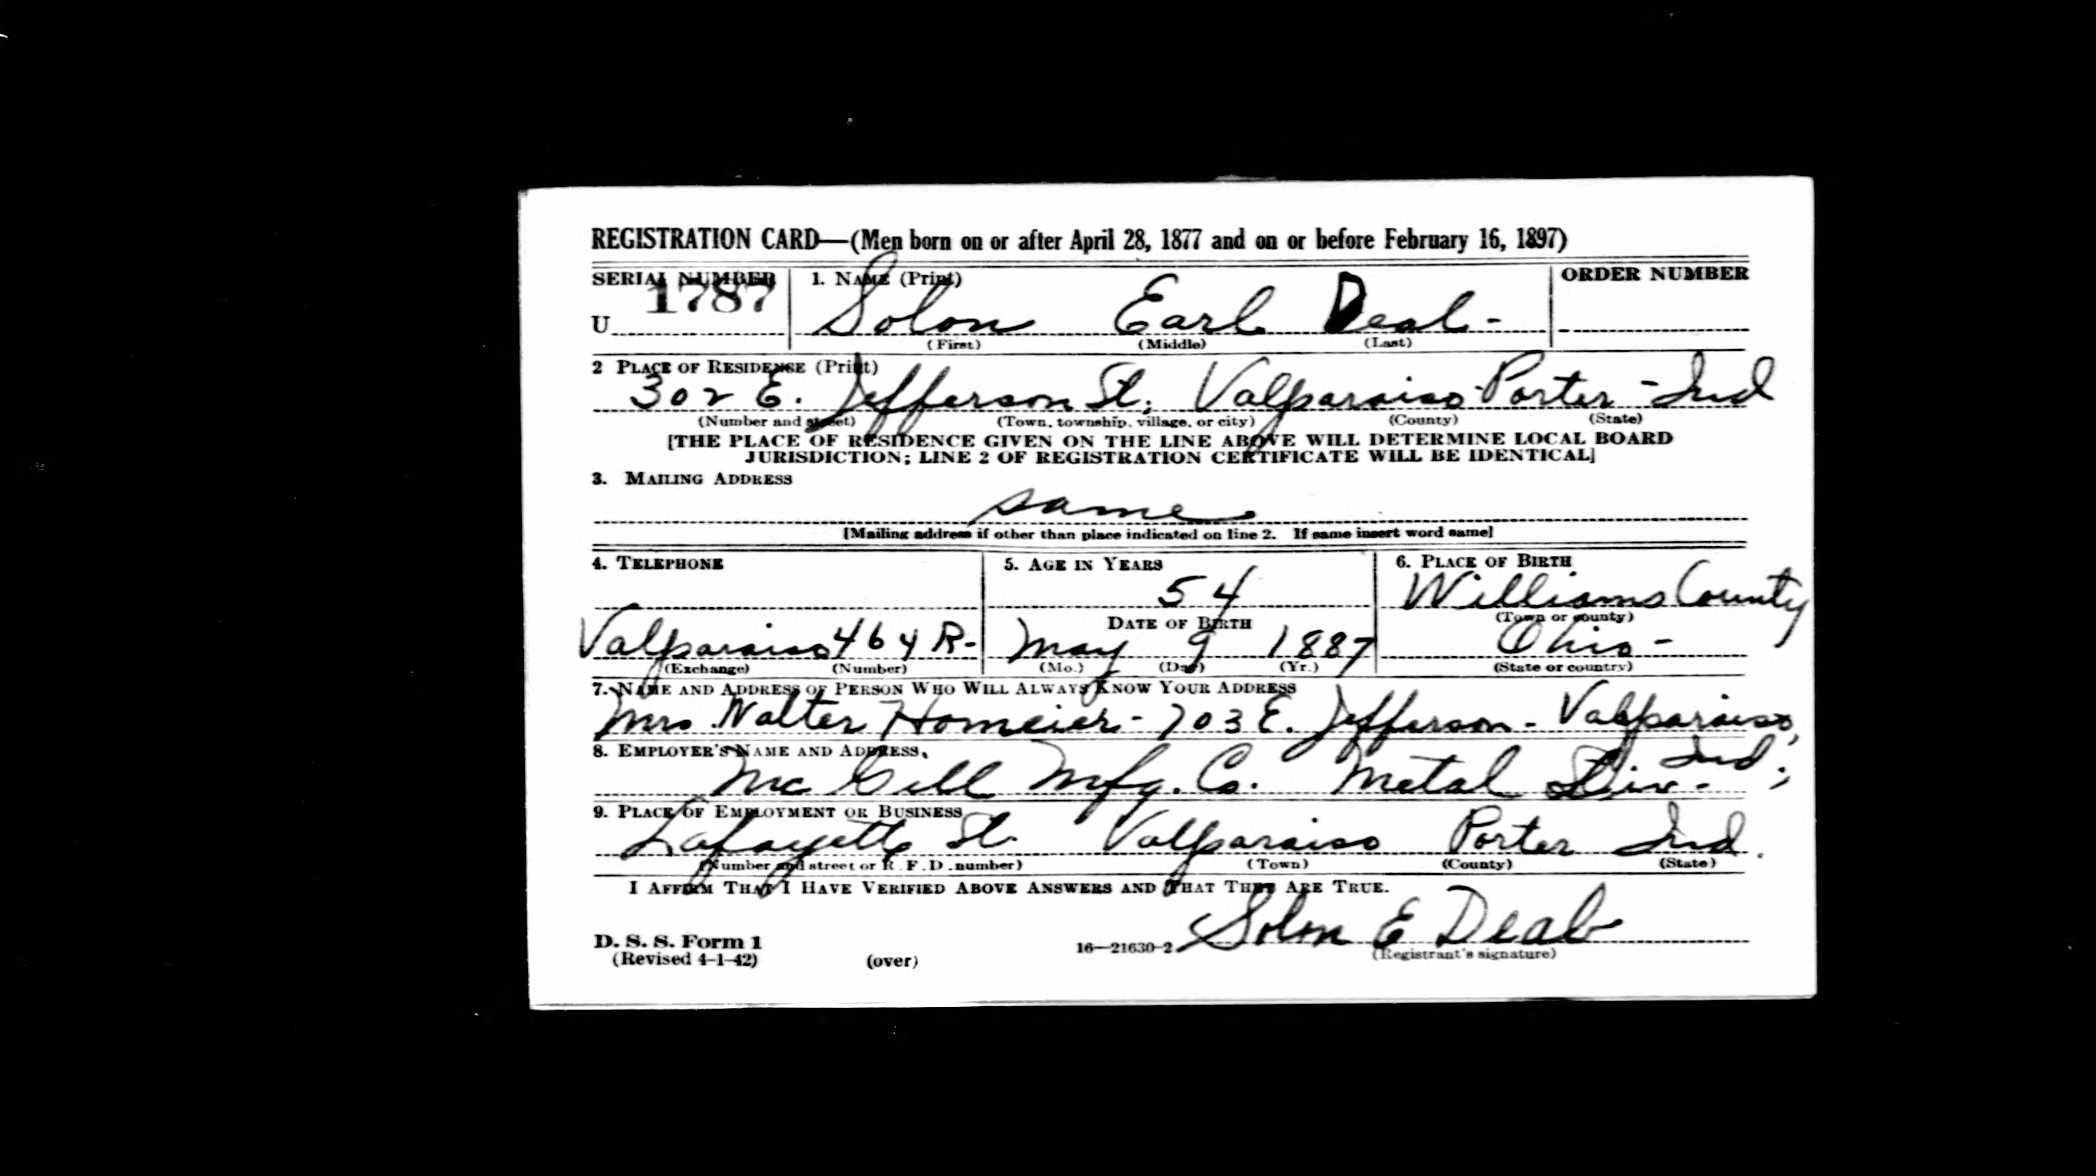 REGISTRATION CARD—(Men born on or after April 28, 1877 and on or before February 16, 1897)
SERIAL NUMBER 1. NAME (Print) ORDER NUMBER
U 1787 Solon Earl Deal -
(First) (Middle) (Last)
2 PLACE OF RESIDENCE (Print)
302 E. Jefferson St, Valparaiso - Porter - Ind
(Number and street) (Town, township, village, or city) (County) (State)
[THE PLACE OF RESIDENCE GIVEN ON THE LINE ABOVE WILL DETERMINE LOCAL BOARD
JURISDICTION; LINE 2 OF REGISTRATION CERTIFICATE WILL BE IDENTICAL]
3. MAILING ADDRESS
same
[Mailing address if other than place indicated on line 2. If same insert word same]
4. TELEPHONE 5. AGE IN YEARS 6. PLACE OF BIRTH
54 Williams County
DATE OF BIRTH (Town or county)
Valparaiso 464 R- May 9 1887 Ohio -
(Exchange) (Number) (Mo.) (Day) (Yr.) (State or country)
7. NAME AND ADDRESS OF PERSON WHO WILL ALWAYS KNOW YOUR ADDRESS
Mrs. Walter Homeier - 703 E. Jefferson - Valparaiso,
8. EMPLOYER'S NAME AND ADDRESS. Ind;
Mc Gill Mfg. Co. Metal Div -
9. PLACE OF EMPLOYMENT OR BUSINESS
Lafayette St. Valparaiso Porter Ind.
(Number and street or R. F. D. number) (Town) (County) (State)
I AFFIRM THAT I HAVE VERIFIED ABOVE ANSWERS AND THAT THEY ARE TRUE.
Solon E Deal
D. S. S. Form 1 16—21630-2 (Registrant's signature)
(Revised 4-1-42) (over)